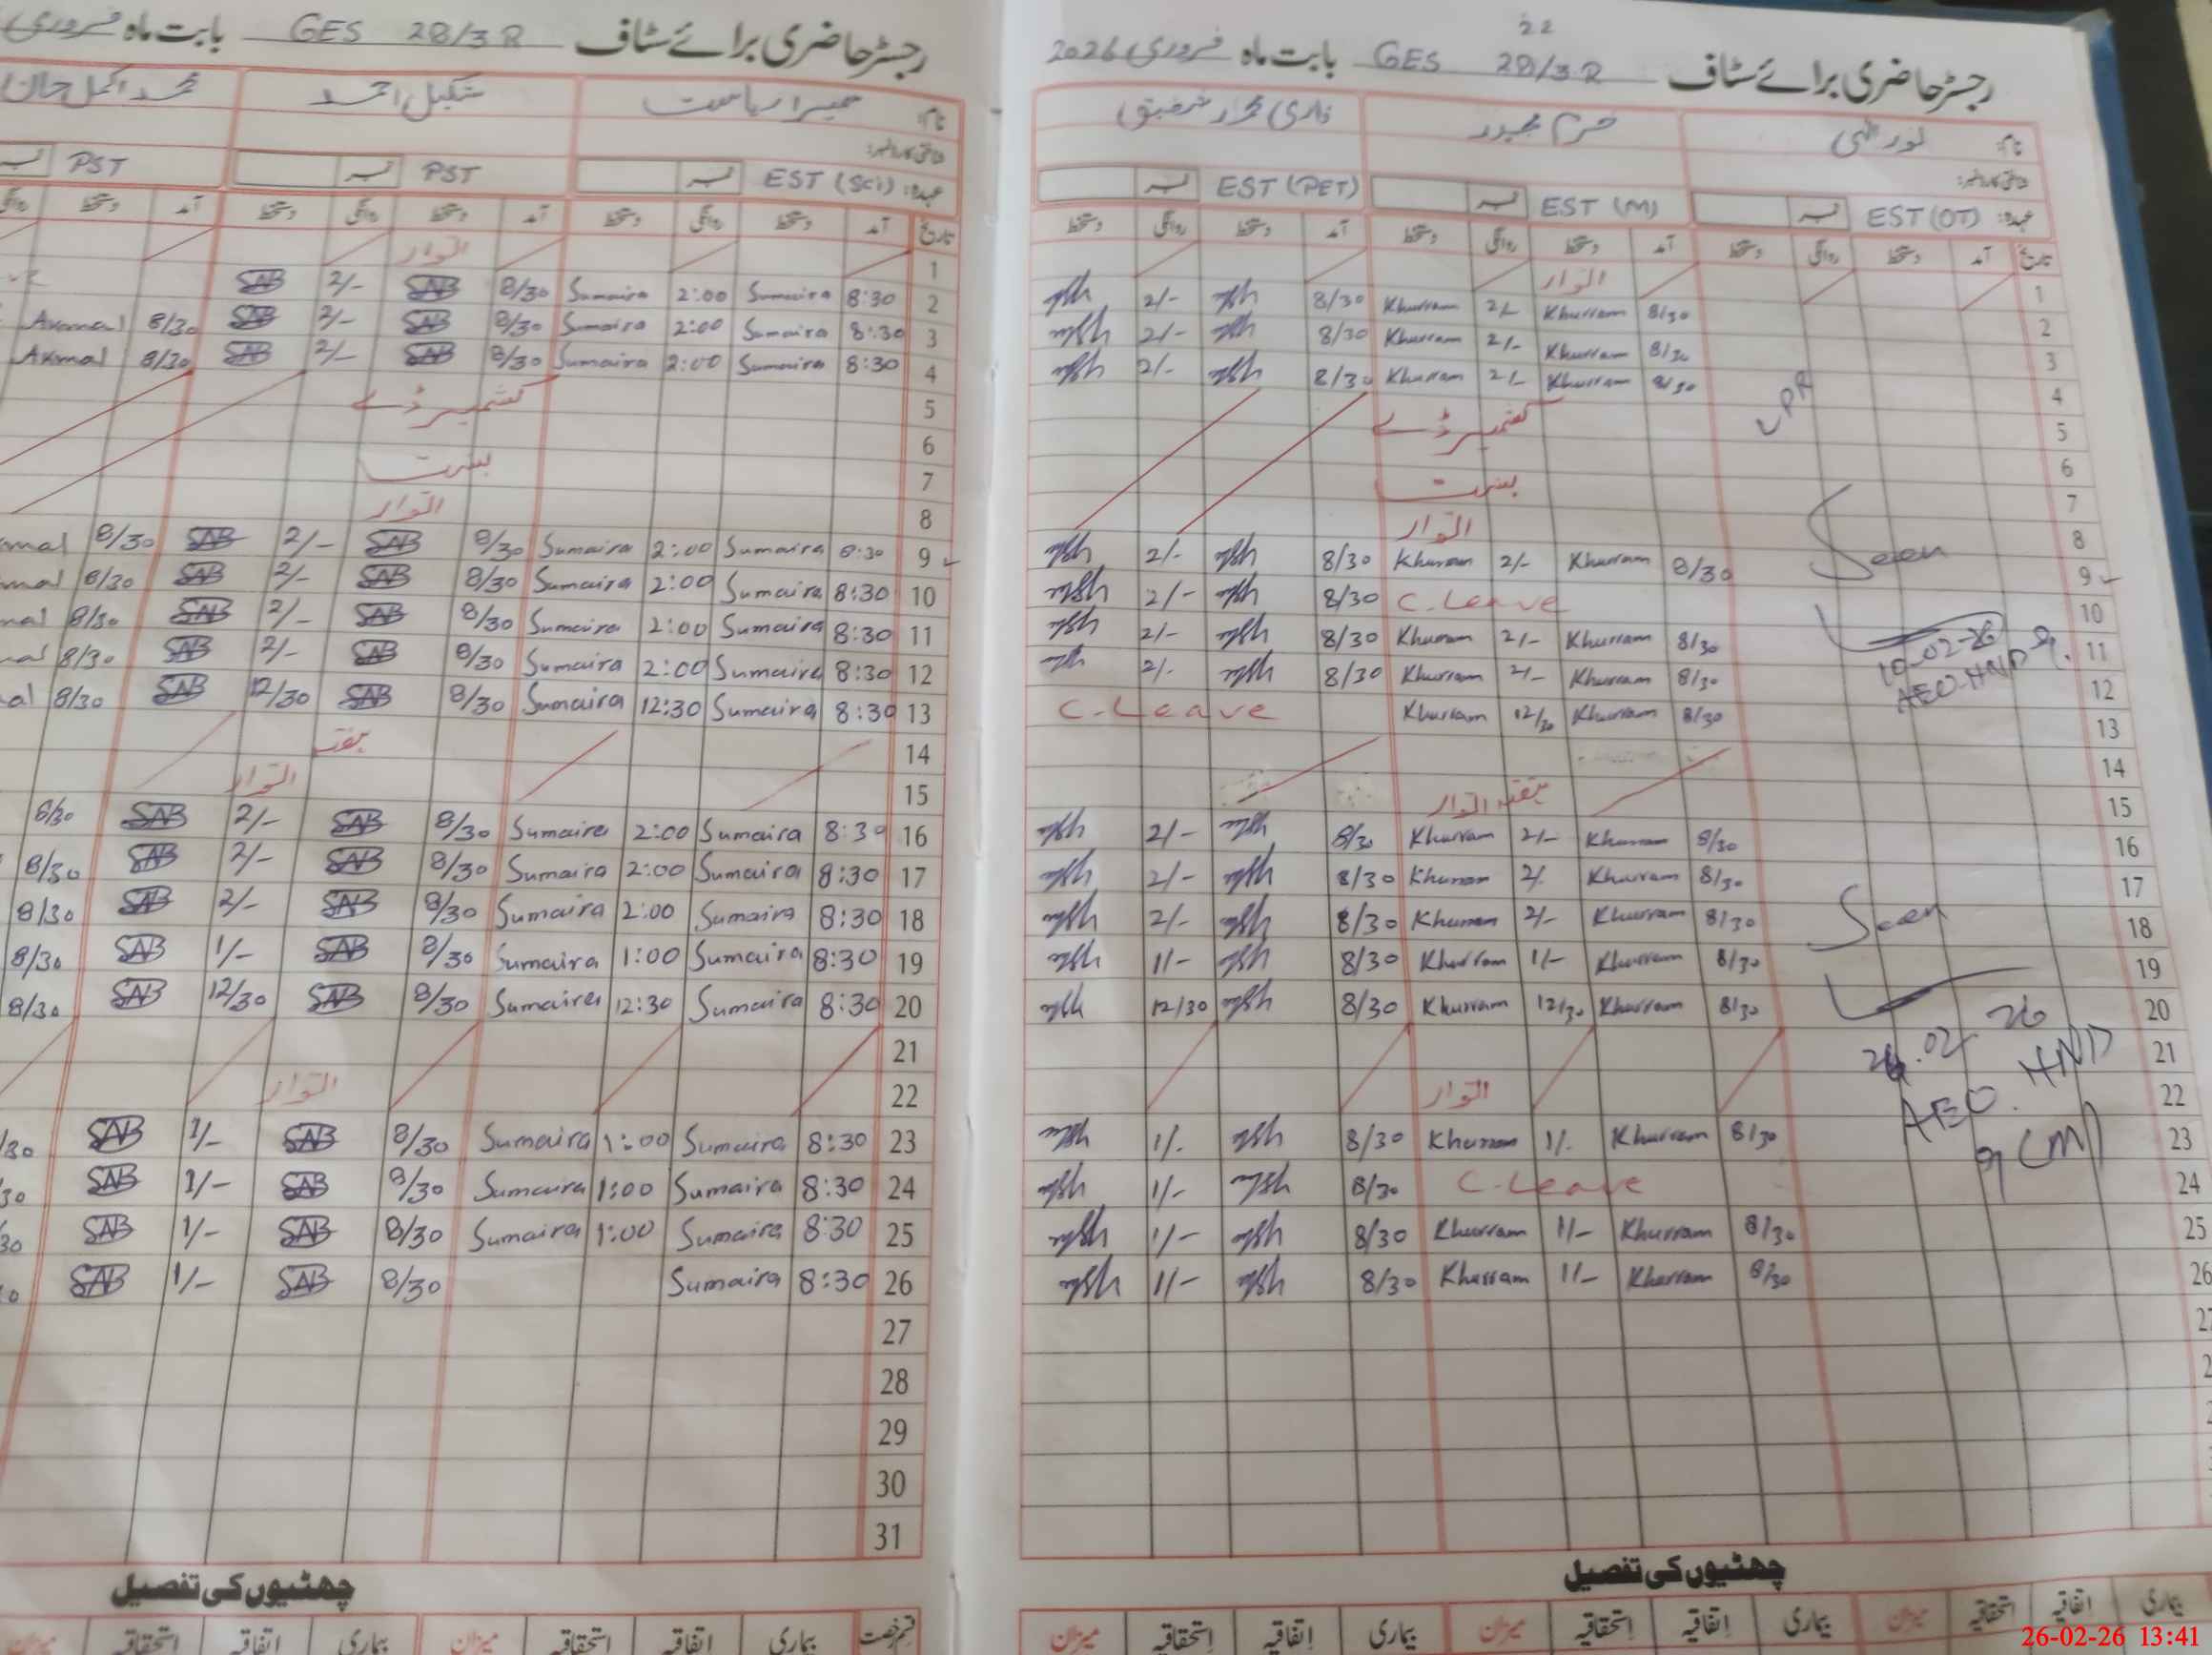 رجسٹر حاضری برائے سٹاف GES 28/3R بابت ماہ فروری 2026
22
نام: نور الٰہی خرم مجید قاری محمد رفیق
عہدہ: EST (OT) EST (M) EST (PET)
تاریخ آمد دستخط روانگی دستخط آمد دستخط روانگی دستخط آمد دستخط روانگی دستخط
1 اتوار
2 8/30 Khurram 2/- Khurram 8/30 2/-
3 8/30 Khurram 2/- Khurram 8/30 2/-
4 8/30 Khurram 2/- Khurram 8/30 2/-
LPR
5 کشمیر ڈے
6
7 بسنت
8 اتوار
9 8/30 Khurram 2/- Khurram 8/30 2/-
Seen
10 C. Leave 8/30 2/-
11 8/30 Khurram 2/- Khurram 8/30 2/-
10-02-26
AEO HND
12 8/30 Khurram 2/- Khurram 8/30 2/-
13 8/30 Khurram 12/30 Khurram C. Leave
14
15 ہفتہ اتوار
16 8/30 Khurram 2/- Khurram 8/30 2/-
17 8/30 Khurram 2/- Khurram 8/30 2/-
18 8/30 Khurram 2/- Khurram 8/30 2/-
Seen
19 8/30 Khurram 1/- Khurram 8/30 1/-
20 8/30 Khurram 12/30 Khurram 8/30 12/30
21
22 اتوار
AEO. HND
(M)
23 8/30 Khurram 1/- Khurram 8/30 1/-
24 C. Leave 8/30 1/-
25 8/30 Khurram 1/- Khurram 8/30 1/-
26 8/30 Khurram 1/- Khurram 8/30 1/-
چھٹیوں کی تفصیل
بیماری اتفاقیہ استحقاقیہ میزان بیماری اتفاقیہ استحقاقیہ میزان بیماری اتفاقیہ استحقاقیہ میزان
رجسٹر حاضری برائے سٹاف GES 28/3R بابت ماہ فروری
نام: سمیرا ریاست شکیل احمد محمد اکمل خان
عہدہ: EST (Sci) PST PST
تاریخ آمد دستخط روانگی دستخط آمد دستخط روانگی دستخط آمد دستخط روانگی
1 اتوار
2 8:30 Sumaira 2:00 Sumaira 8/30 SAB 2/- SAB
3 8:30 Sumaira 2:00 Sumaira 8/30 SAB 2/- SAB 8/30 Akmal
4 8:30 Sumaira 2:00 Sumaira 8/30 SAB 2/- SAB 8/30 Akmal
5 کشمیر ڈے
6
7 بسنت
8 اتوار
9 8:30 Sumaira 2:00 Sumaira 8/30 SAB 2/- SAB 8/30
10 8:30 Sumaira 2:00 Sumaira 8/30 SAB 2/- SAB 8/30
11 8:30 Sumaira 2:00 Sumaira 8/30 SAB 2/- SAB 8/30
12 8:30 Sumaira 2:00 Sumaira 8/30 SAB 2/- SAB 8/30
13 8:30 Sumaira 12:30 Sumaira 8/30 SAB 12/30 SAB 8/30
14 ہفتہ
15 اتوار
16 8:30 Sumaira 2:00 Sumaira 8/30 SAB 2/- SAB 8/30
17 8:30 Sumaira 2:00 Sumaira 8/30 SAB 2/- SAB 8/30
18 8:30 Sumaira 2:00 Sumaira 8/30 SAB 2/- SAB 8/30
19 8:30 Sumaira 1:00 Sumaira 8/30 SAB 1/- SAB 8/30
20 8:30 Sumaira 12:30 Sumaira 8/30 SAB 12/30 SAB 8/30
21
22 اتوار
23 8:30 Sumaira 1:00 Sumaira 8/30 SAB 1/- SAB
24 8:30 Sumaira 1:00 Sumaira 8/30 SAB 1/- SAB
25 8:30 Sumaira 1:00 Sumaira 8/30 SAB 1/- SAB
26 8:30 Sumaira 8/30 SAB 1/- SAB
27
28
29
30
31
چھٹیوں کی تفصیل
قسم رخصت بیماری اتفاقیہ استحقاقیہ میزان بیماری اتفاقیہ استحقاقیہ میزان
26-02-26 13:41